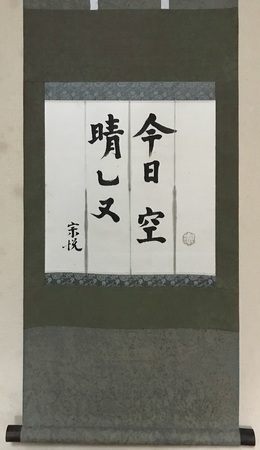 今日空
晴レヌ
宗悦